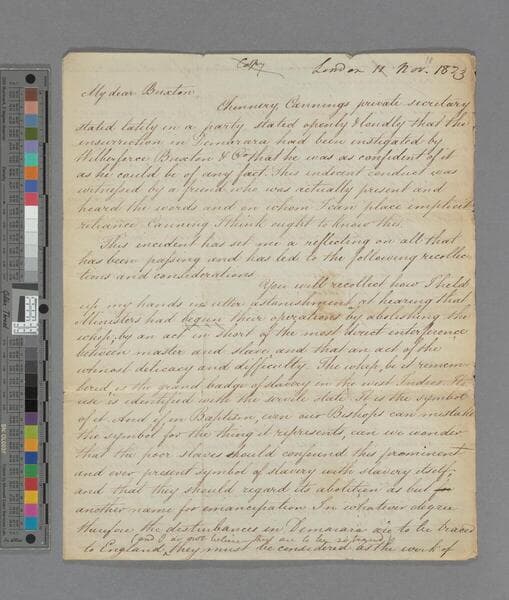 Copy
London 11 Nov.r 1823
My dear Buxton
Chinnery, Cannings private secretary
stated lately in a party stated openly & loudly that the
insurrection in Demerara had been instigated by
Wilberforce Buxton & Co that he was as confident of it
as he could be of any fact. This indecent conduct was
witnessed by a friend who was actually present and
heard the words and on whom I can place implicit
reliance. Canning I think ought to know this.
This incident has set me a reflecting on all that
has been passing and has led to the following recollec
tions and considerations
You will recollect how I held
up my hands in utter astonishment at hearing that
Ministers had begun their operations by abolishing the
whip, by an act in short of the most direct interference
between master and slave, and that an act of the
utmost delicacy and difficulty. The whip, be it remem
bered is the grand badge of slavery in the West Indies. Its
use is identified with the servile state. It is the symbol
of it. And if in Baptism, even our Bishops can mistake
the symbol for the thing it represents, can we wonder
that the poor slaves should confound this prominent
and ever present symbol of slavery with slavery itself;
and that they should regard its abolition as but
another name for emancipation. In whatever degree
therefore the disturbances in Demerara are to be traced
(and I do not believe they are to be
to England, they must be considered as the work of